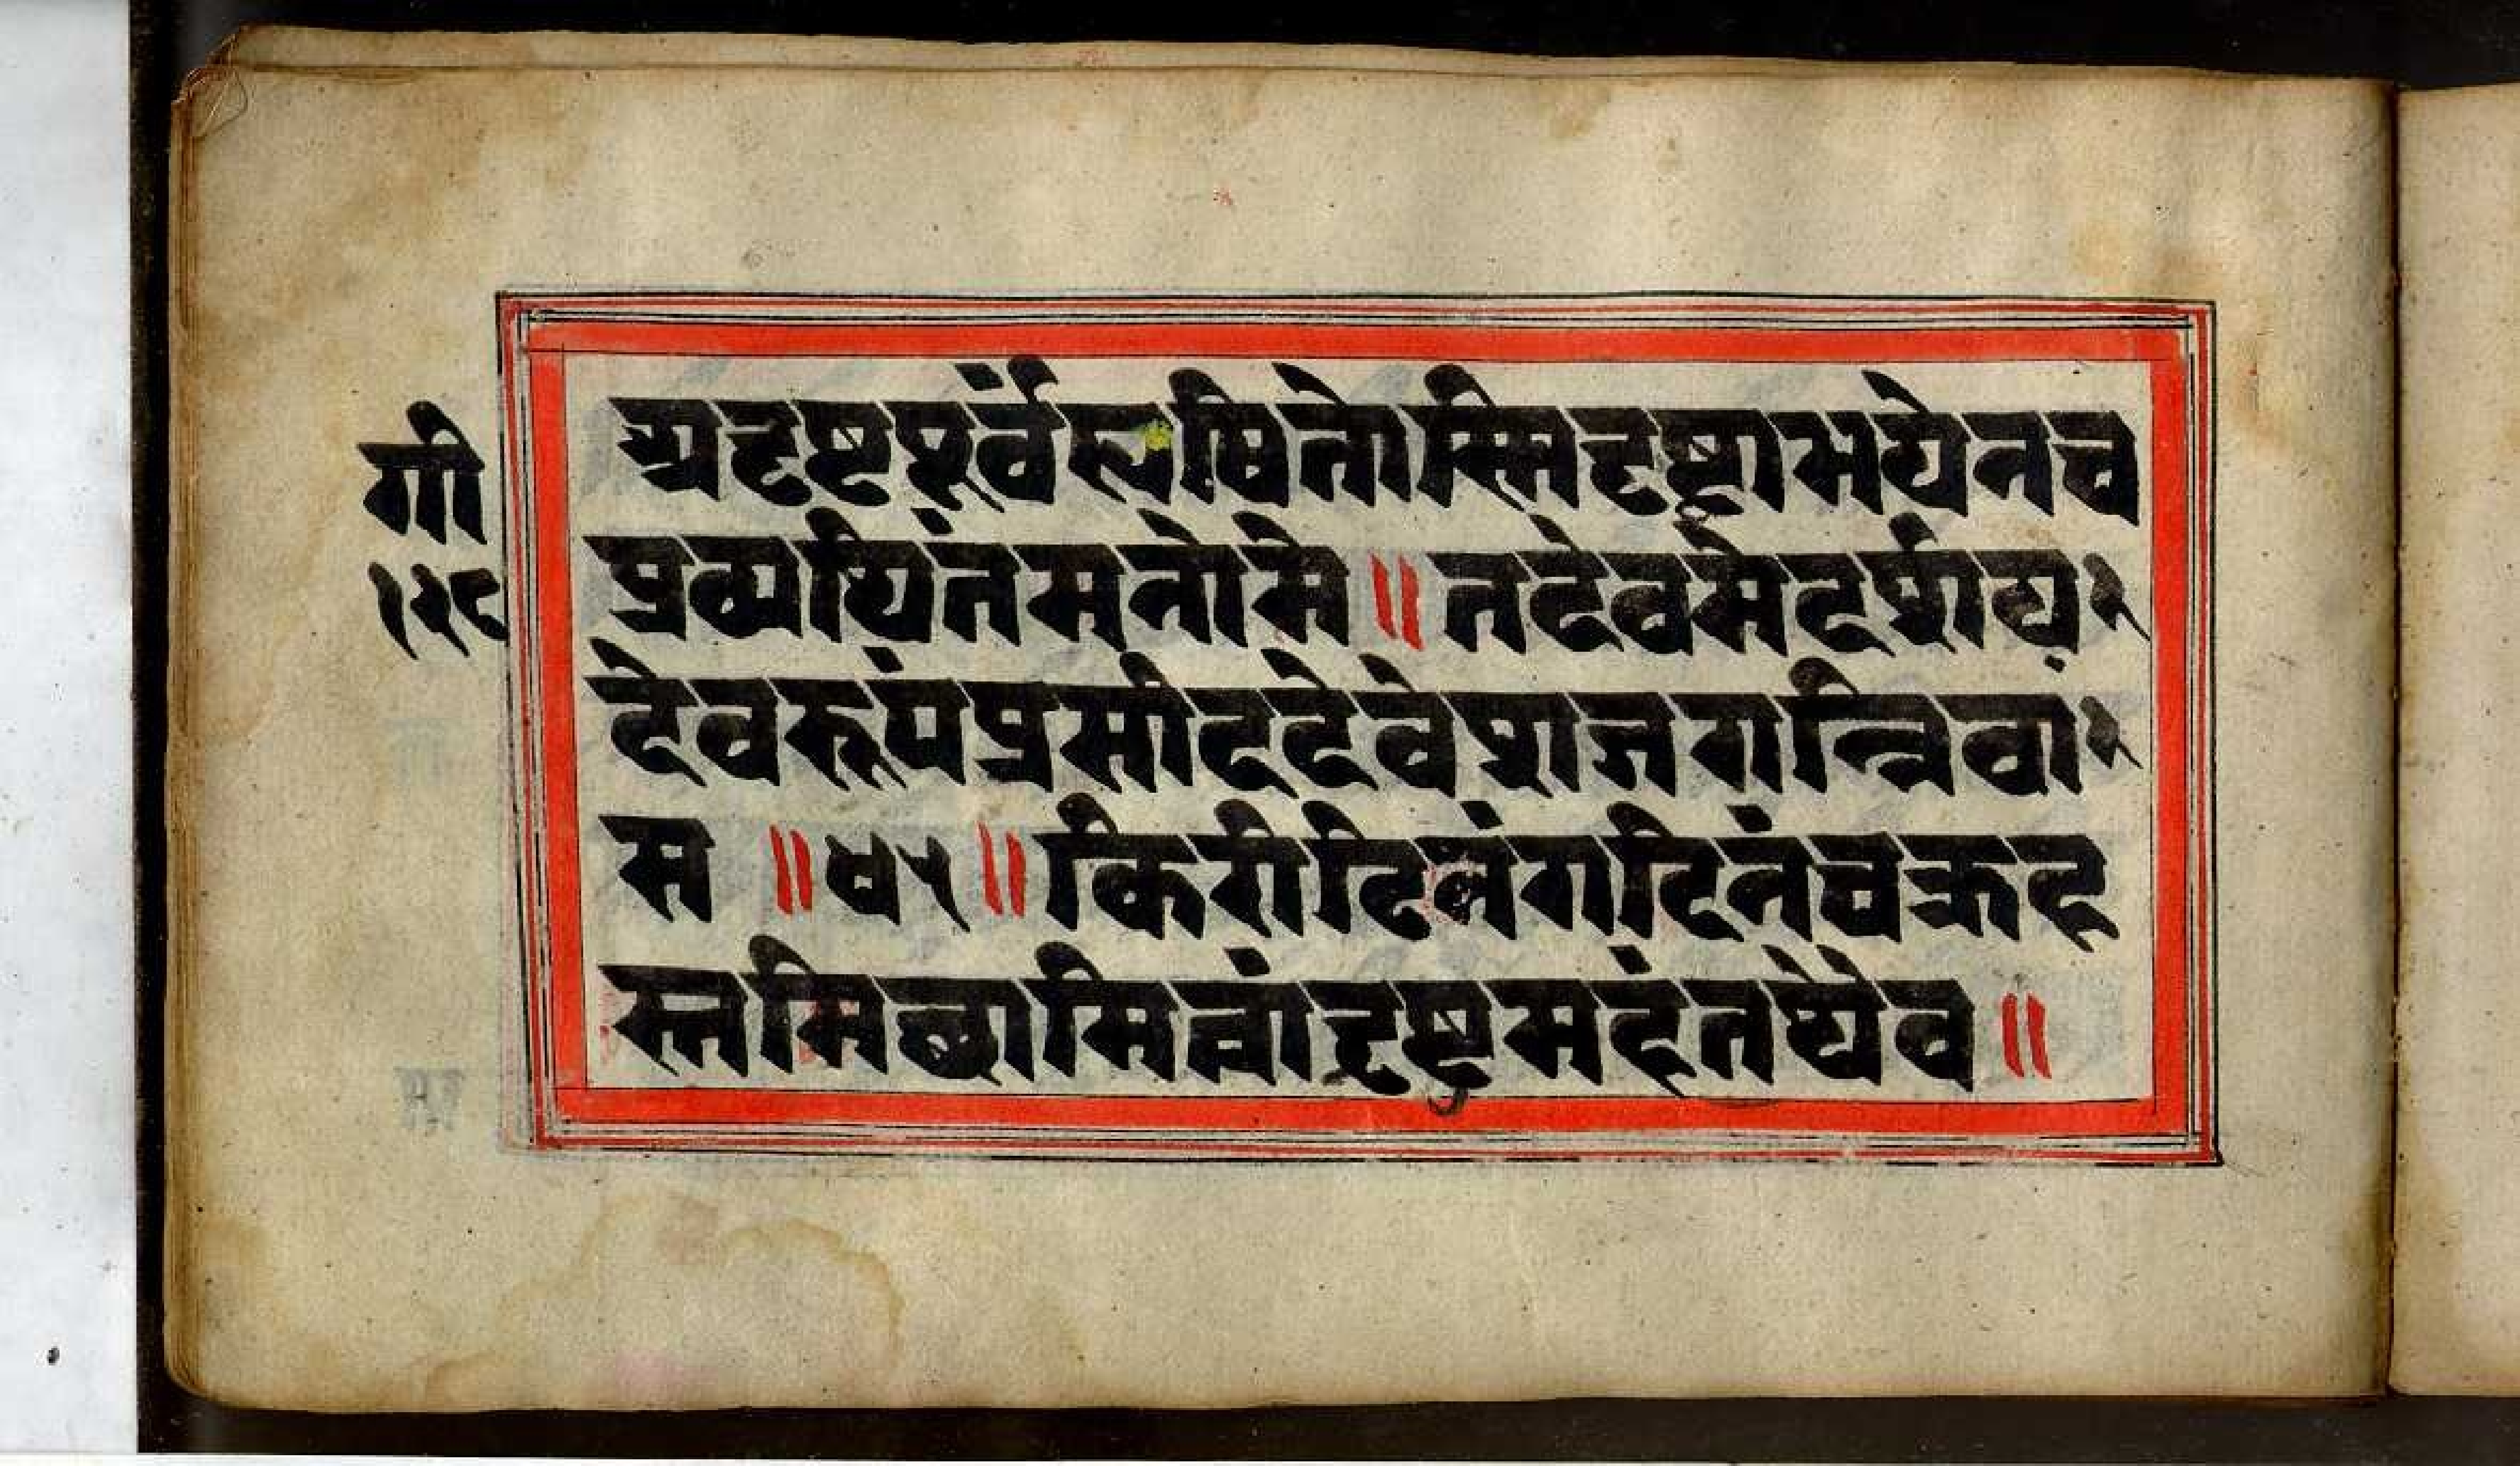 गी
१२८
अदृष्टपूर्वंहृषितोस्मिदृष्ट्वाभयेनच
प्रव्यथितंमनोमे ॥ तदेवमेदर्शय
देवरूपंप्रसीददेवेशजगन्निवा
स ॥ ४५ ॥ किरीटिनंगदिनंचक्रह
स्तमिछामित्वांद्रष्टुमहंतथैव ॥